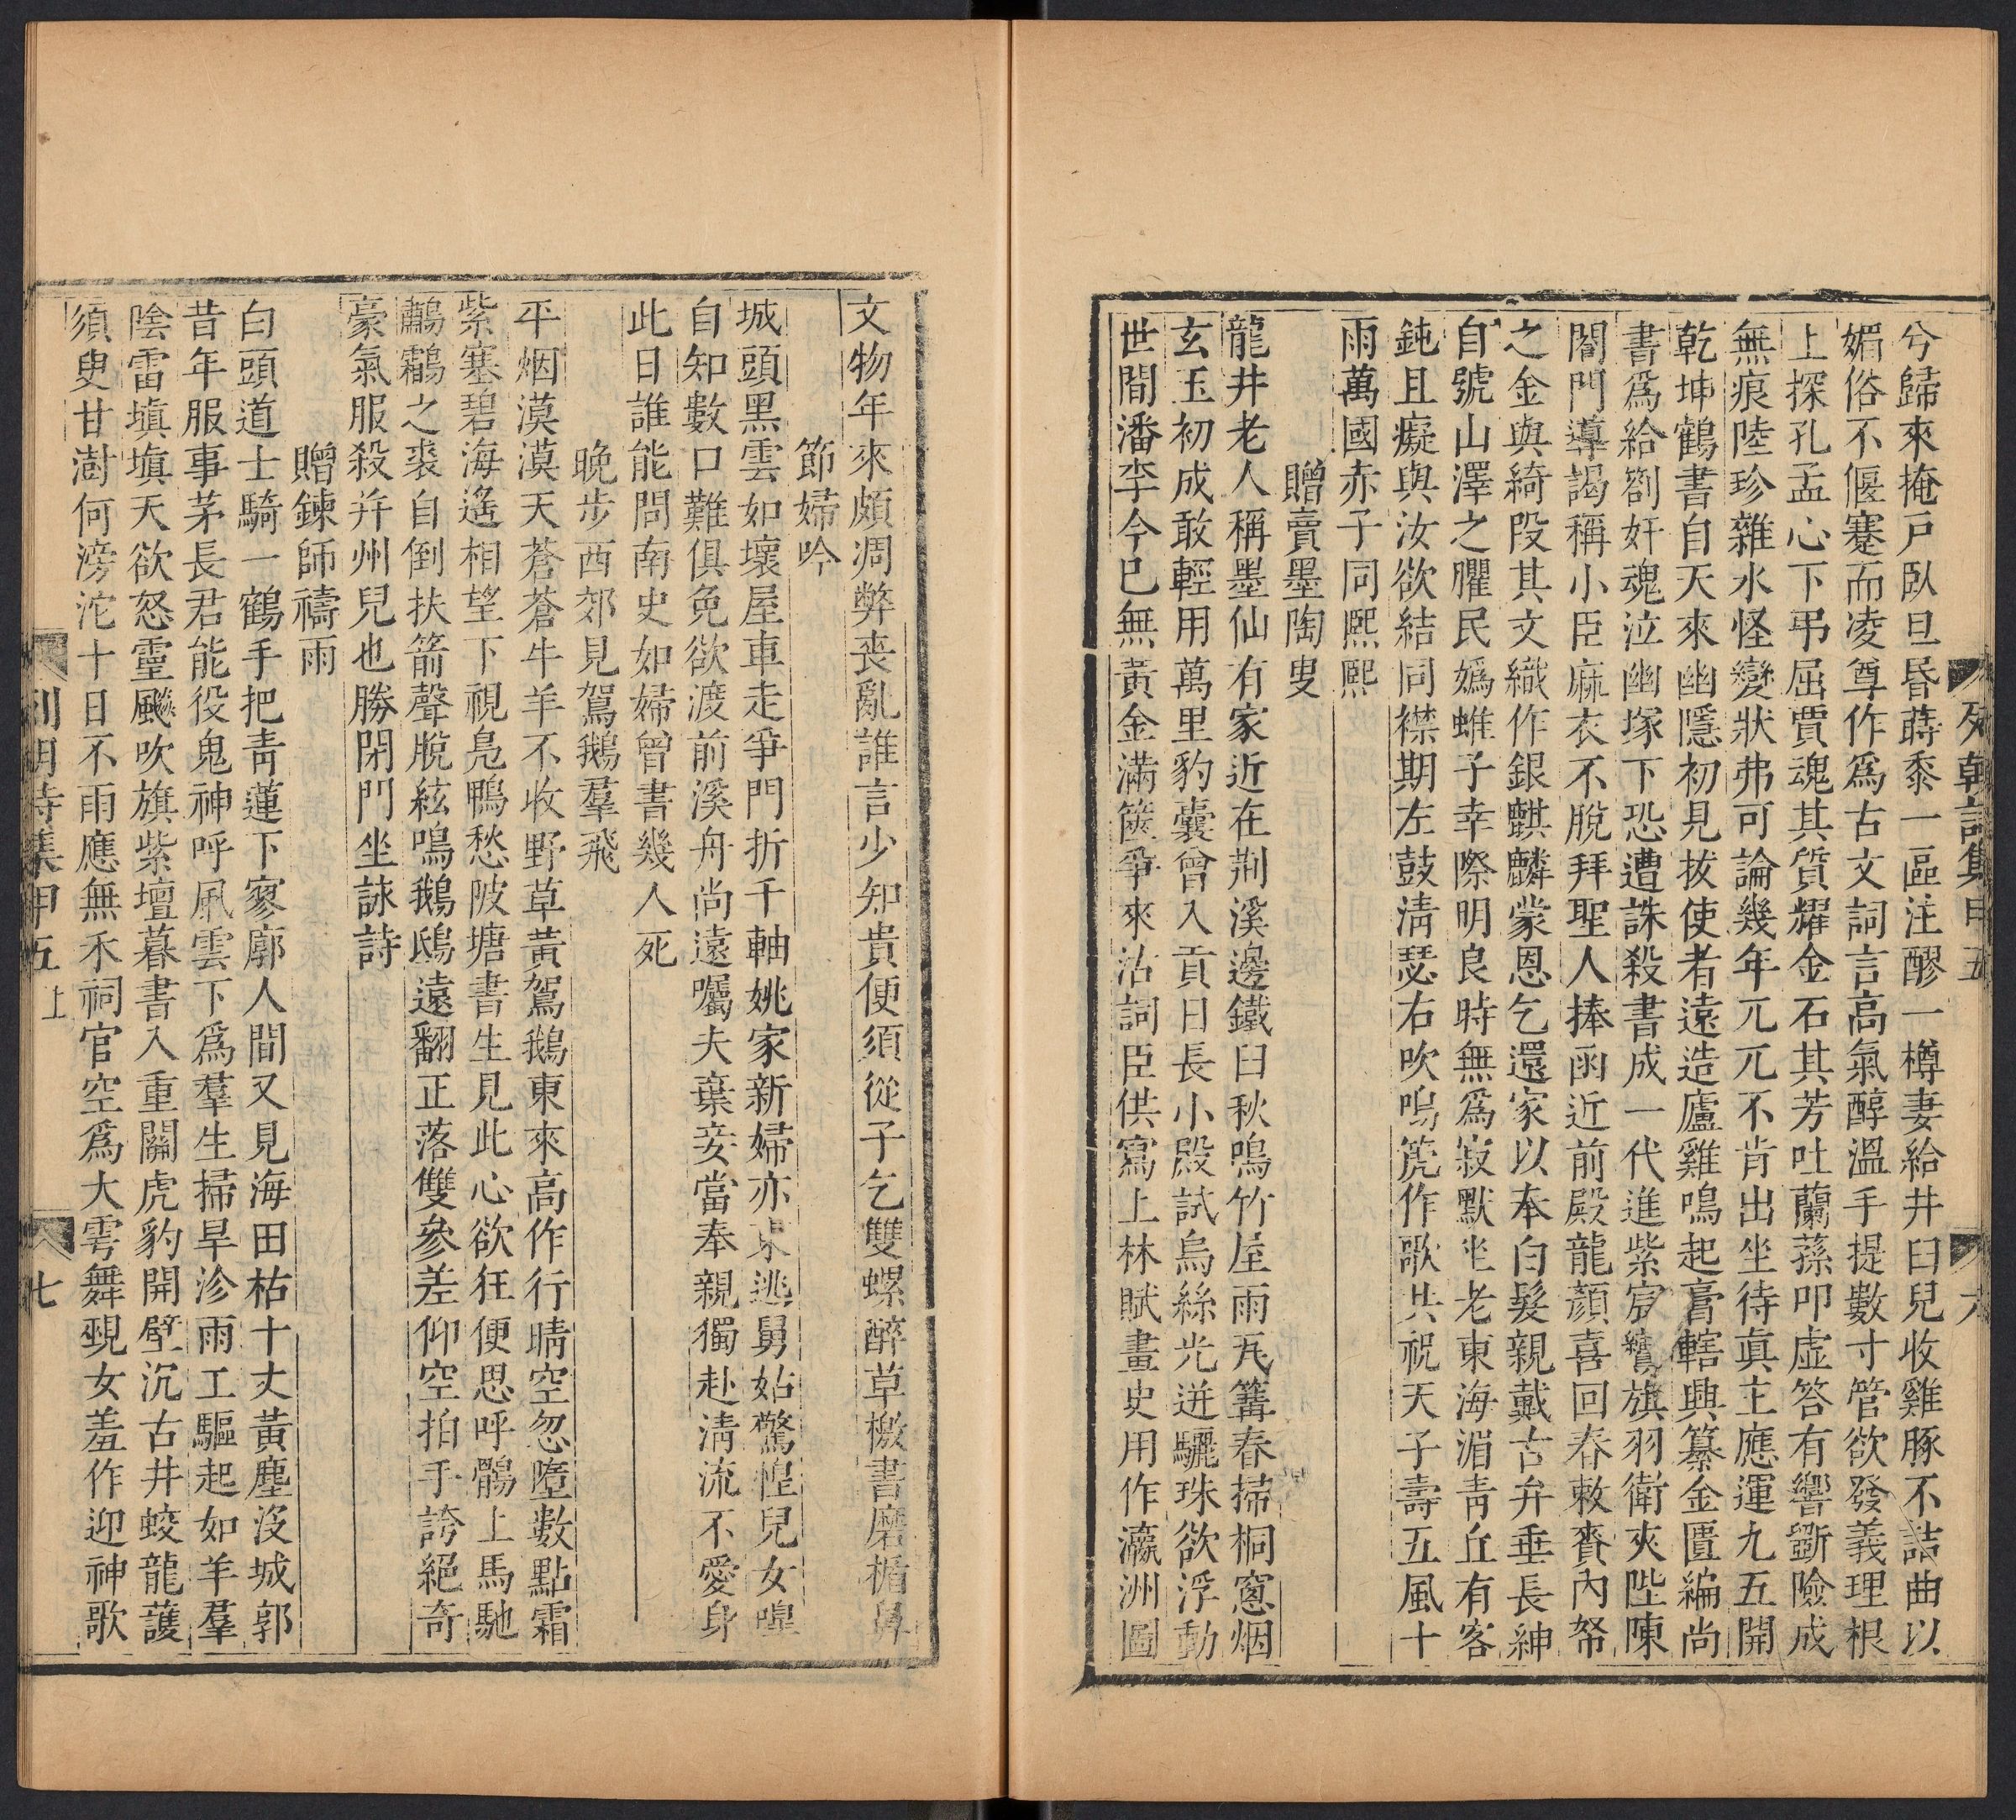 兮歸來掩戸臥旦昏蒔黍一區注醪一樽妻給井臼兒收雞豚不詰曲以
媚俗不偃蹇而凌尊作爲古文詞言高氣醇溫手提數寸管欲發義理根
上探孔孟心下弔屈賈魂其質耀金石其芳吐蘭蓀叩虛答有響斵險成
無痕陸珍雜水怪變狀弗可論幾年兀兀不肯出坐待眞主應運九五開
乾坤鶴書自天來幽隱初見拔使者遠造廬雞鳴起膏轄興纂金匱編尚
書爲給劄奸魂泣幽塚下恐遭誅殺書成一代進紫宸鸞旗羽衛夾陛陳
閤門導謁稱小臣麻衣不脫拜聖人捧函近前殿龍顏喜回春敕賚內帑
之金與綺段其文織作銀麒麟蒙恩乞還家以奉白髮親戴古弁垂長紳
自號山澤之臞民嫣蜼子幸際明良時無爲寂默坐老東海湄青丘有客
鈍且癡與汝欲結同襟期左鼓淸瑟右吹鳴箎作歌共祝天子壽五風十
雨萬國赤子同熙熙
贈賣墨陶叟
龍井老人稱墨仙有家近在荆溪邊鐵臼秋鳴竹屋雨瓦篝春掃桐窻烟
玄玉初成敢輕用萬里豹囊曾入貢日長小殿試烏絲光迸驪珠欲浮動
世間潘李今已無黃金滿篋爭來沽詞臣供寫上林賦畫史用作瀛洲圖
文物年來頗凋弊喪亂誰言少知貴便須從子乞雙螺醉草檄書磨楯鼻
節婦吟
城頭黑雲如壞屋車走爭門折千軸姚家新婦亦東逃舅姑驚惶兒女哭
自知數口難俱免欲渡前溪舟尚遠囑夫棄妾當奉親獨赴淸流不愛身
此日誰能問南史如婦曾書幾人死
晚步西郊見駕鵝羣飛
平烟漠漠天蒼蒼牛羊不收野草黃駕鵝東來高作行晴空忽墮數點霜
紫塞碧海遙相望下視鳧鴨愁陂塘書生見此心欲狂便思呼鶻上馬馳
鷫鸘之裘自倒扶箭聲脫絃鳴鵝鴟遠翻正落雙參差仰空拍手誇絕奇
豪氣服殺幷州兒也勝閉門坐詠詩
贈鍊師禱雨
白頭道士騎一鶴手把靑蓮下寥廓人間又見海田枯十丈黃塵沒城郭
昔年服事茅長君能役鬼神呼風雲下爲羣生掃旱沴雨工驅起如羊羣
陰雷塡塡天欲怒靈颷吹旗紫壇暮書入重關虎豹開壁沉古井蛟龍護
須臾甘澍何滂沱十日不雨應無禾祠官空爲大雩舞覡女羞作迎神歌
列朝詩集甲五
六
列朝詩集甲五上
七